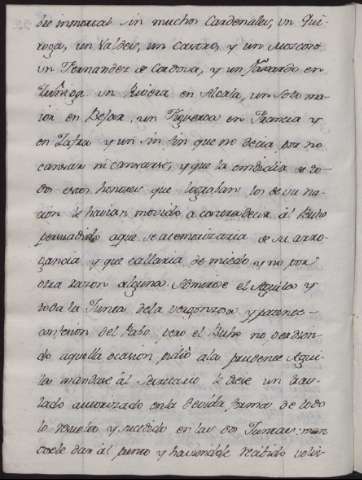 bre inmortal in muchos Cardenales, un Qui-
roga, un Valdés, un Castro, y un Moscoso
un Fernandez de Cordova, y un Faxardo en
un Rivera en Alcala, un Soto ma-
ior en un Figueroa en Francia y
en Zafra y un in fin que no decia por no
cansar ni cansarse, y que la embidia de to-
dos estos honores que lograban los de su na-
cion le havian movido a contradecir al Buho
persuadido aque se atemorizaria de su arro-
gancia y que callaria de miedo y no por
otra razon alguna. el Aguila y
toda la Junta de la vergonzosa y patente
confesion del Pato, pero el Buho no perdien-
do aquella ocasion, pidió a la prudente Agui-
la mandase al Secretario le diese un tras-
lado autorizado en la devida forma de todo
lo resuelto y sucedido en las dos Juntas: man-
dosele dar al punto y haviendole recibido volvi-